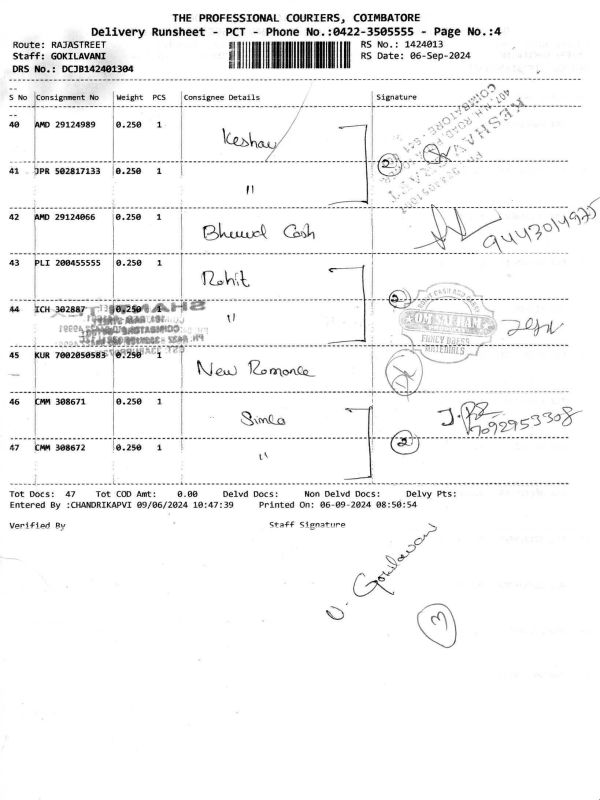 THE PROFESSIONAL COURIERS, COIMBATORE
Delivery Runsheet - PCT - Phone No.:0422-3505555 - Page No.:4
Route: RAJASTREET RS No.: 1424013
Staff: GOKILAVANI RS Date: 06-Sep-2024
DRS No.: DCJB142401304
S No Consignment No Weight PCS Consignee Details Signature
40 AMD 29124989 0.250 1 Keshav
KESHAV
COIMBATORE - 641
41 JPR 502817133 0.250 1 "
2
42 AMD 29124066 0.250 1 Cash
9443014925
43 PLI 200455555 0.250 1 Rohit
44 ICH 302887 0.250 1 "
2
FANCY DRESS
MATERIALS
45 KUR 7002050583 0.250 1 New Romance
46 CMM 308671 0.250 1 Simla
7092953308
47 CMM 308672 0.250 1 "
2
Tot Docs: 47 Tot COD Amt: 0.00 Delvd Docs: Non Delvd Docs: Delvy Pts:
Entered By :CHANDRIKAPVI 09/06/2024 10:47:39 Printed On: 06-09-2024 08:50:54
Verified By Staff Signature
N. Gokilavani
3